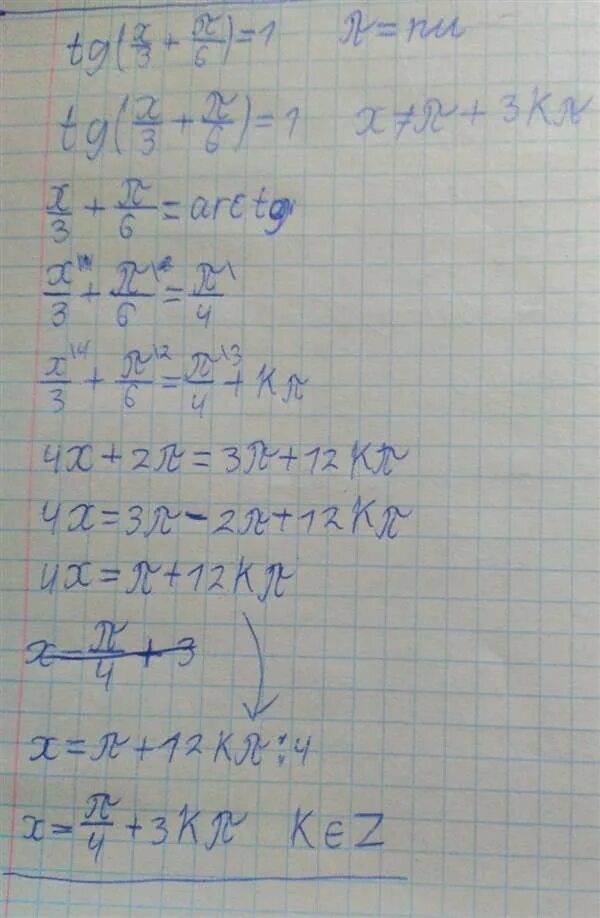 tg(x/3 + π/6)=1 π=пи
tg(x/3 + π/6)=1 x≠π+3Kπ
x/3 + π/6 = arctg
x/3 + π/6 = π/4
x\4/3 + π\2/6 = π\3/4 + Kπ
4x+2π=3π+12Kπ
4x=3π-2π+12Kπ
4x=π+12Kπ
x=π/4+3
x=π+12Kπ:4
x=π/4+3Kπ K∈Z